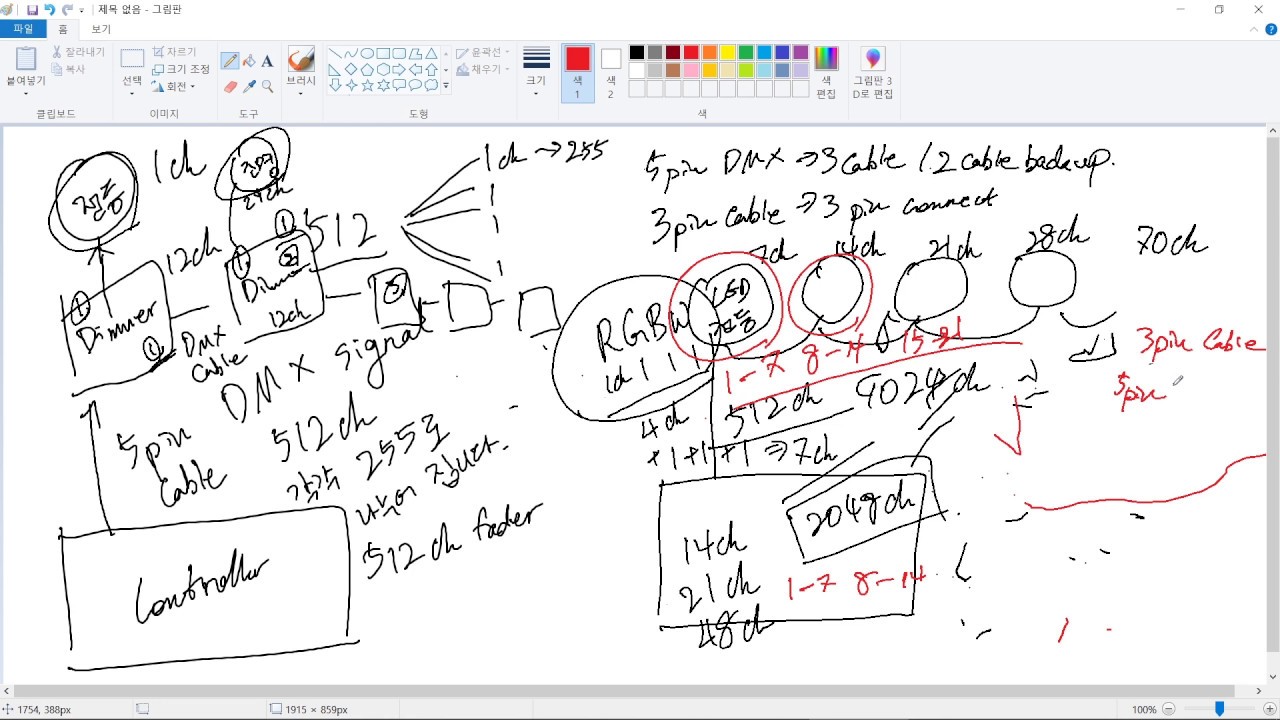 제목 없음 - 그림판
파일
홈
보기
붙여넣기
잘라내기
복사
클립보드
선택
자르기
크기 조정
회전
이미지
A
도구
브러시
윤곽선
채우기
도형
크기
색
1
색
2
색
편집
그림판 3
D로 편집
색
전등
1ch
조명
24ch
12ch
① Dimmer ②
① ② Dimmer
12ch
①
512
1ch → 255
1
1
1
③
DMX
Cable
DMX signal
5pin
Cable
512ch
각각 255로
나누어 집니다.
512ch fader
Controller
5pin DMX ⇒ 3 Cable / 2 cable backup.
3pin Cable ⇒ 3 pin connect
7ch
14ch
21ch
28ch
70ch
LED
전등
RGBW
1ch 1 1 1
4ch
+1+1+1 ⇒ 7ch
1-7 8-14 15-21
512ch
3pin Cable
5pin
2048ch
14ch
21ch
48ch
1-7 8-14
1754, 388px
1915 × 859px
100%